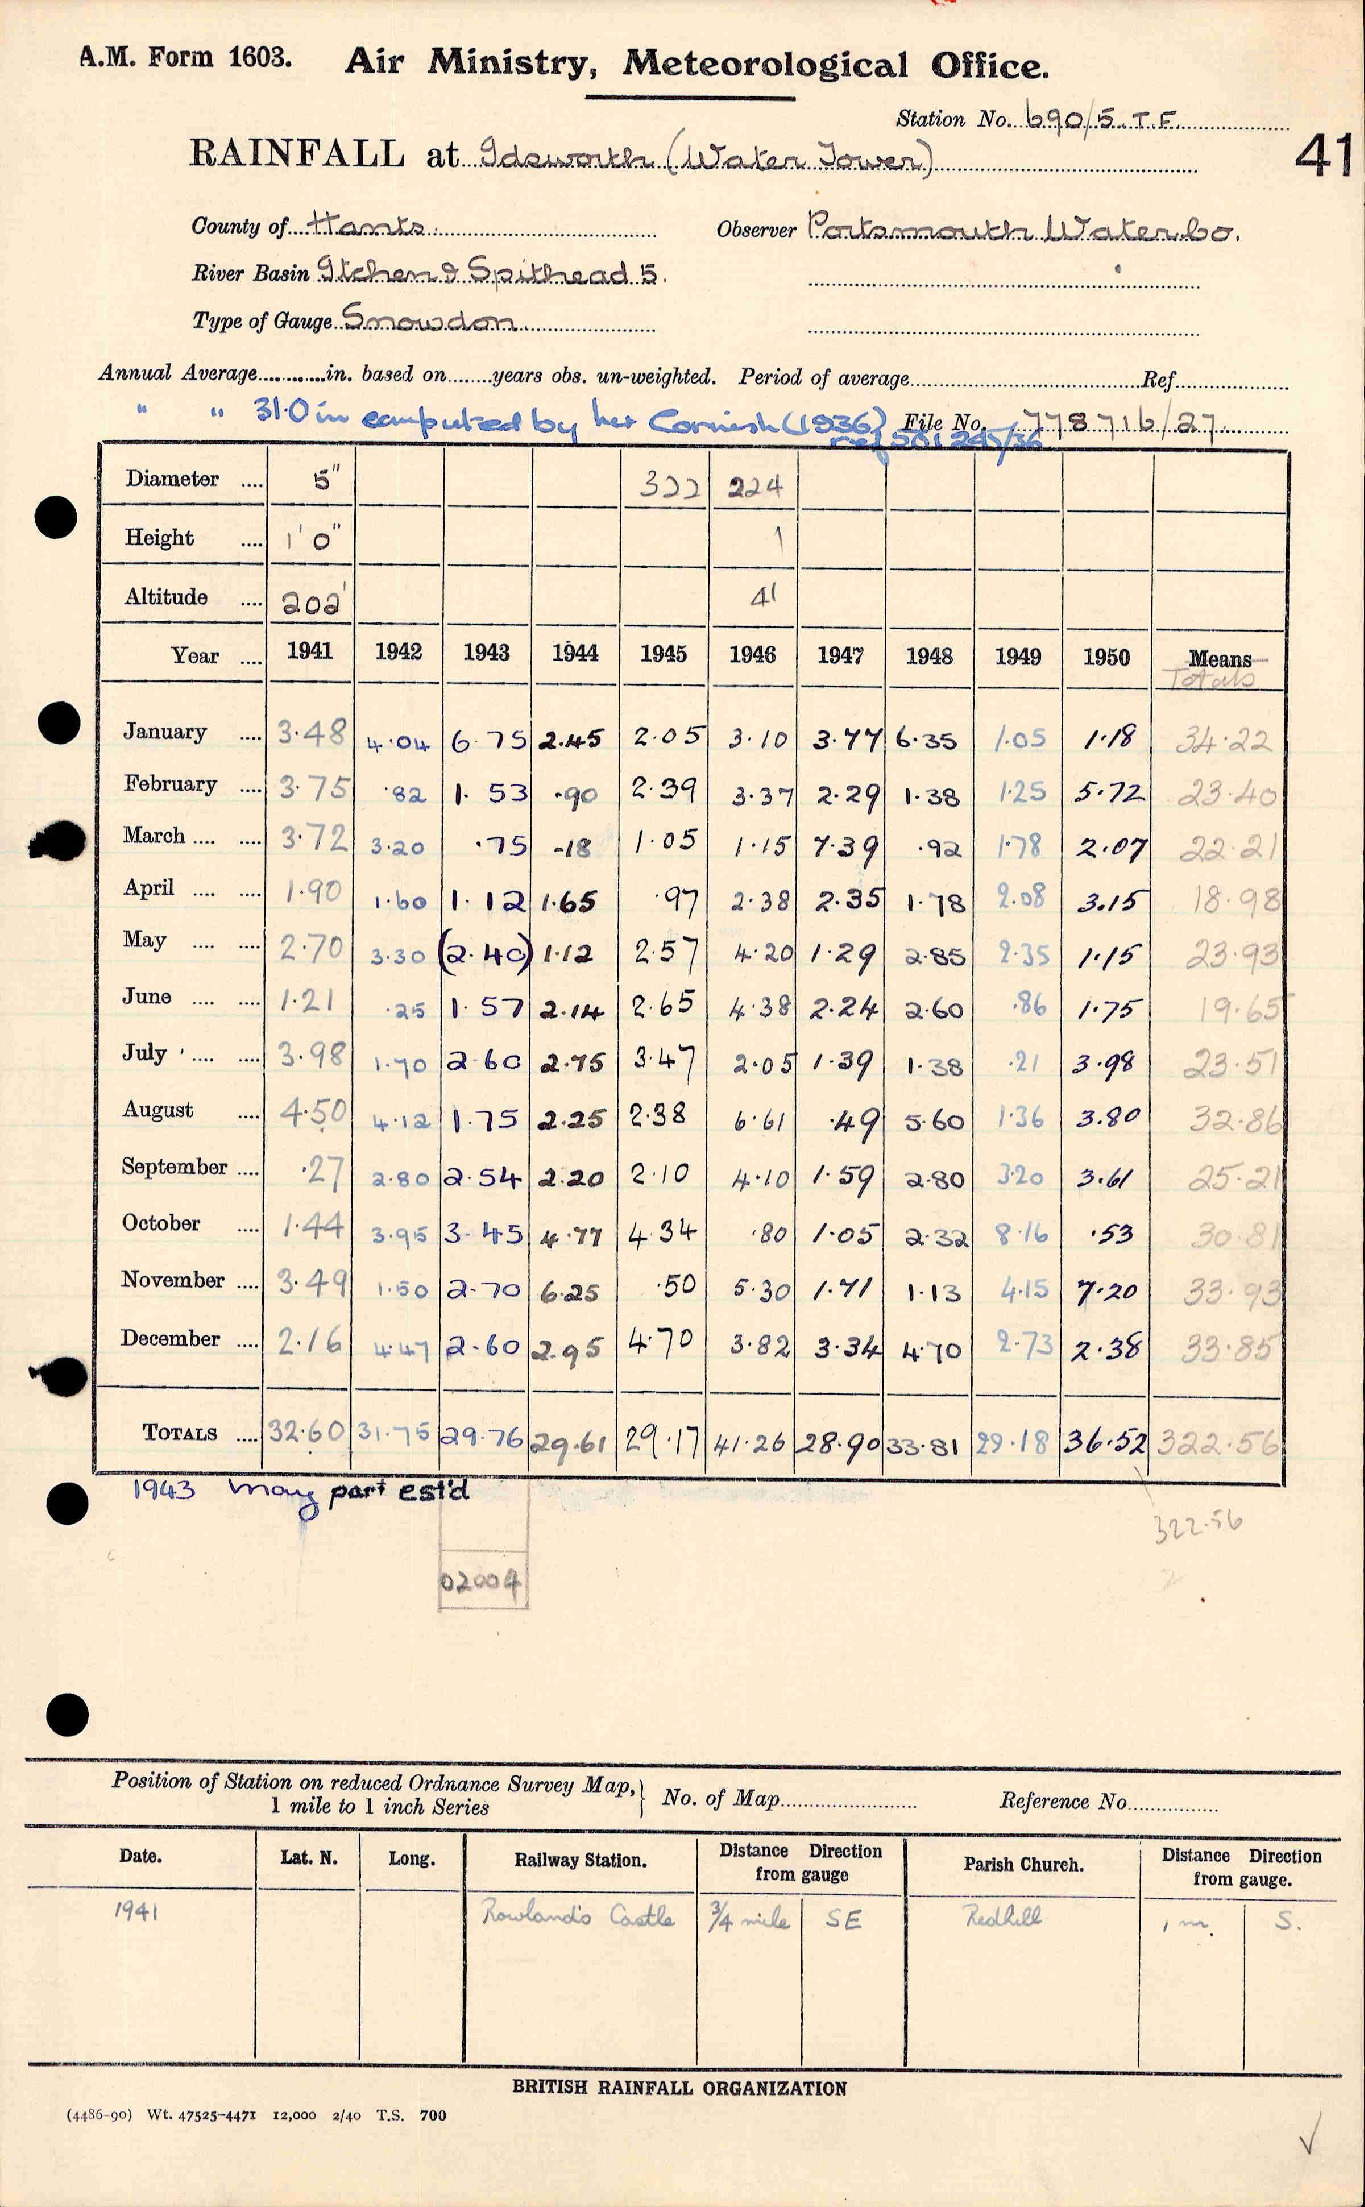 A.M. Form 1603. Air Ministry, Meteorological Office.
Station No. 690/5. T.F.
RAINFALL at Idsworth (Water Tower)
41
County of Hants. Observer Portsmouth Water Co.
River Basin Itchen & Spithead 5.
Type of Gauge Snowdon
Annual Average............in. based on........years obs. un-weighted. Period of average............ Ref............
" " 31.0 in computed by her Cornish (1936) File No. 778716/27
ref 501295/36
Diameter .... 5" 322 224
Height .... 1' 0" 1
Altitude .... 202' 41
Year .... 1941 1942 1943 1944 1945 1946 1947 1948 1949 1950 Means
Totals
January .... 3.48 4.04 6.75 2.45 2.05 3.10 3.77 6.35 1.05 1.18 34.22
February .... 3.75 .82 1.53 .90 2.39 3.37 2.29 1.38 1.25 5.72 23.40
March .... .... 3.72 3.20 .75 .18 1.05 1.15 7.39 .92 1.78 2.07 22.21
April .... .... 1.90 1.60 1.12 1.65 .97 2.38 2.35 1.78 2.08 3.15 18.98
May .... .... 2.70 3.30 (2.40) 1.12 2.57 4.20 1.29 2.85 2.35 1.15 23.93
June .... .... 1.21 .25 1.57 2.14 2.65 4.38 2.24 2.60 .86 1.75 19.65
July .... .... 3.98 1.70 2.60 2.75 3.47 2.05 1.39 1.38 .21 3.98 23.51
August .... 4.50 4.12 1.75 2.25 2.38 6.61 .49 5.60 1.36 3.80 32.86
September .... .27 2.80 2.54 2.20 2.10 4.10 1.59 2.80 3.20 3.61 25.21
October .... 1.44 3.95 3.45 4.77 4.34 .80 1.05 2.32 8.16 .53 30.81
November .... 3.49 1.50 2.70 6.25 .50 5.30 1.71 1.13 4.15 7.20 33.93
December .... 2.16 4.47 2.60 2.95 4.70 3.82 3.34 4.70 2.73 2.38 33.85
TOTALS .... 32.60 31.75 29.76 29.61 29.17 41.26 28.90 33.81 29.18 36.52 322.56
1943 May part est'd
322.56
02004
2
Position of Station on reduced Ordnance Survey Map,
1 mile to 1 inch Series
No. of Map............ Reference No............
Date. Lat. N. Long. Railway Station. Distance Direction from gauge Parish Church. Distance Direction from gauge.
1941 Rowland's Castle 3/4 mile SE Redhill 1 m. S.
BRITISH RAINFALL ORGANIZATION
(4486-90) Wt. 47525-4471 12,000 2/40 T.S. 700